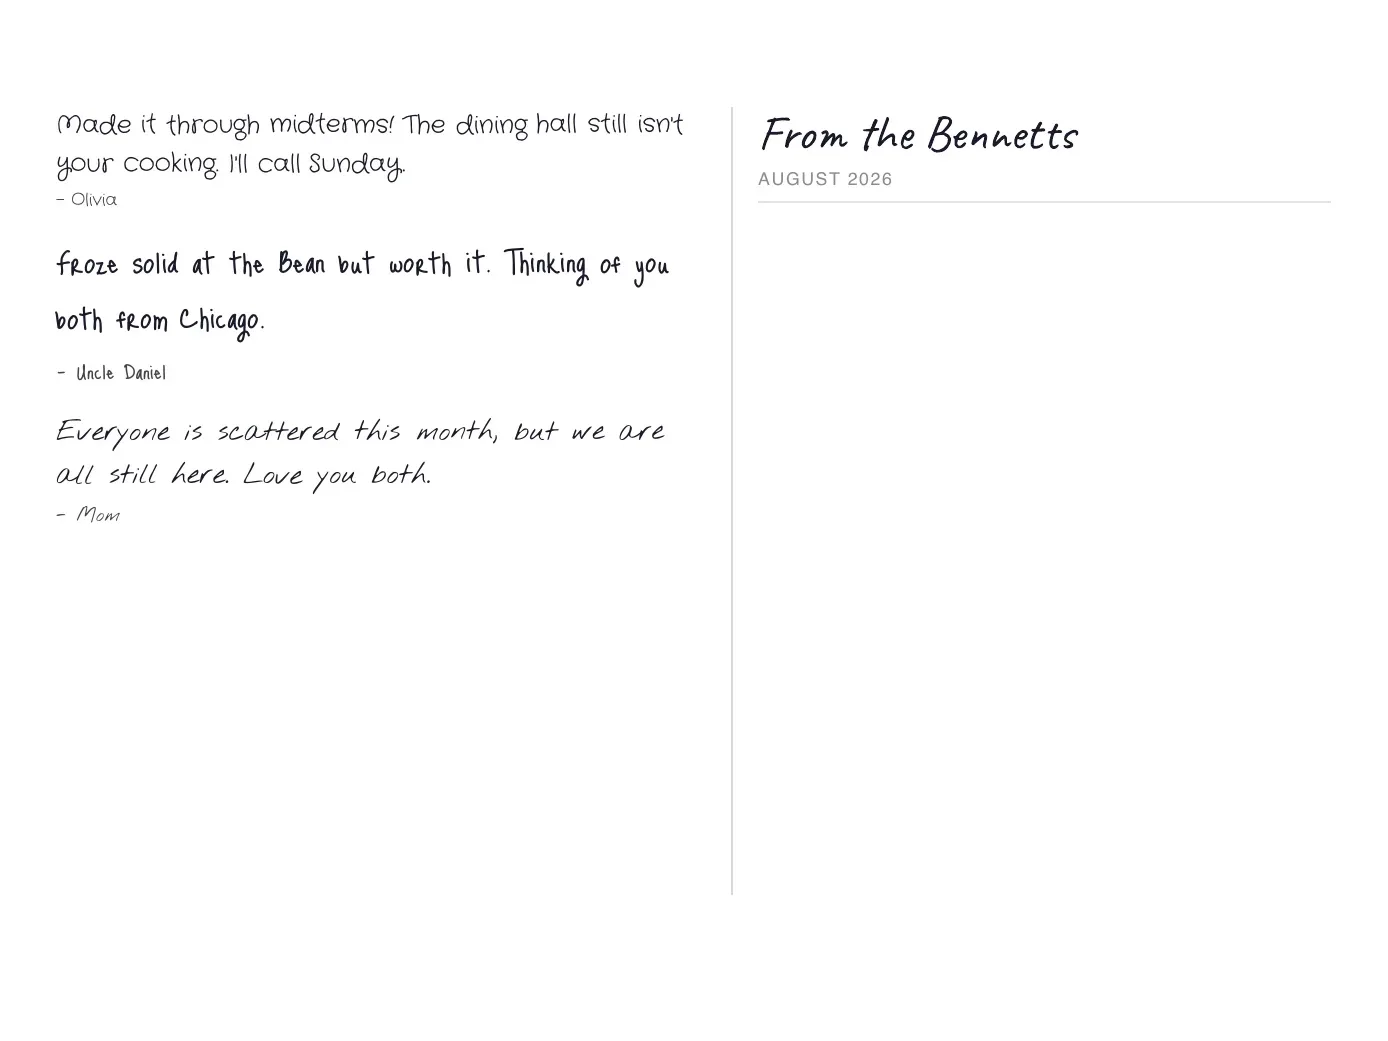 Made it through midterms! The dining hall still isn't
your cooking. I'll call Sunday.
– Olivia
Froze solid at the Bean but worth it. Thinking of you
both from Chicago.
– Uncle Daniel
Everyone is scattered this month, but we are
all still here. Love you both.
– Mom
From the Bennetts
AUGUST 2026